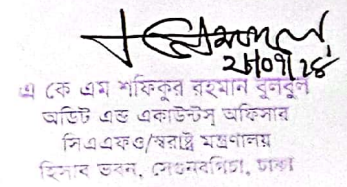 ২৮/০৭/২৪
এ কে এম শফিকুর রহমান বুলবুল
অডিট এন্ড একাউন্টস্ অফিসার
সিএএফও/স্বরাষ্ট্র মন্ত্রণালয়
হিসাব ভবন, সেগুনবাগিচা, ঢাকা